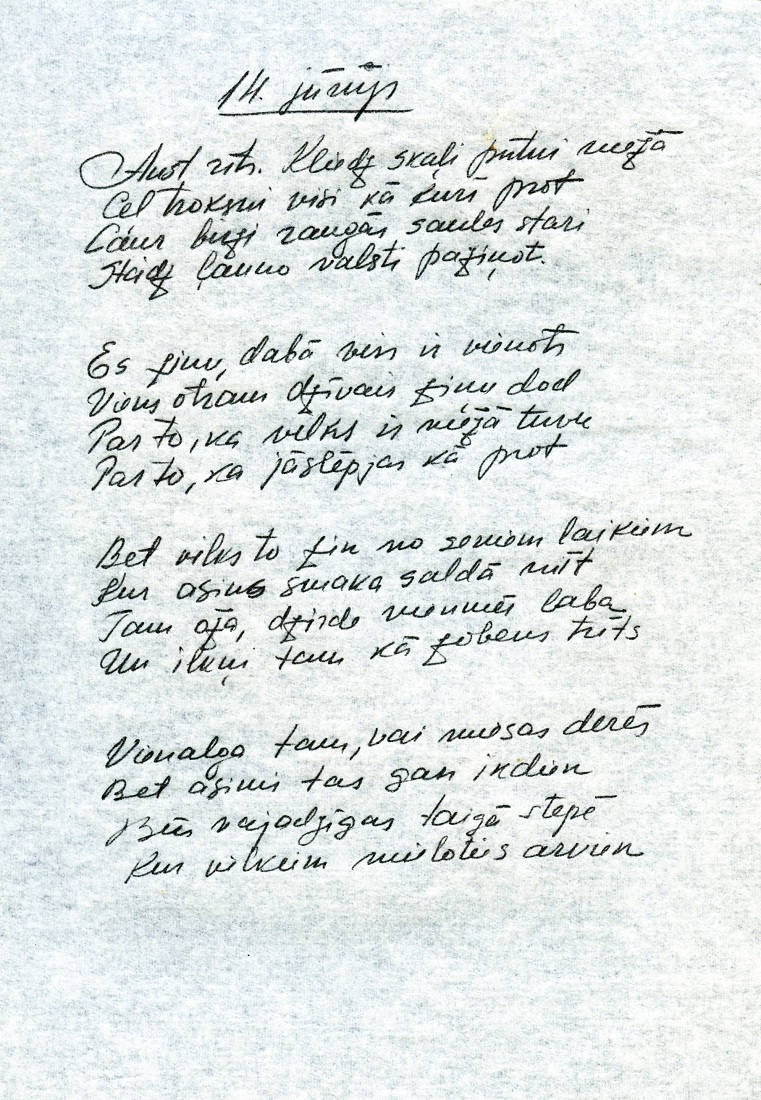 14. jūnijs
Aust rīts. Kliedz skaļi putni mežā
Cel troksni visi kā kurš prot
Caur birzi raugās saules stari
Steidz ļauno valsti paziņot.
Es zinu, dabā viss ir vienots
Viens otram dzīvais ziņu dod
Par to, ka vilks ir mežā tuvu
Par to, ka jāslēpjas kā prot
Bet vilks to zin no seniem laikiem
Kur asins smaka saldā mīt
Tam oža, dzirde vienmēr laba
Un ilkņi tam kā zobens trīts
Vienalga tam, vai miesas derēs
Bet asinis tas gan ikdien
Būs vajadzīgas taigā stepē
Kur vilkiem mieloties arvien